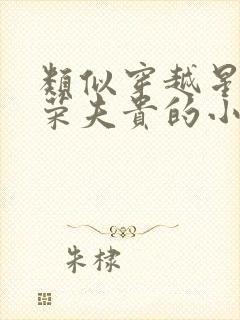 類似穿越星
荣夫貴的小
朱棣